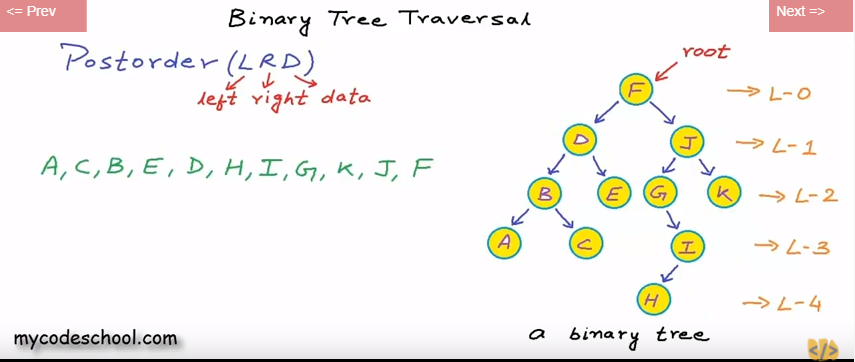 <= Prev
Next =>
Binary Tree Traversal
Postorder (LRD)
left right data
A, C, B, E, D, H, I, G, K, J, F
root
F → L-0
D J → L-1
B E G K → L-2
A C I → L-3
H → L-4
a binary tree
mycodeschool.com
</>